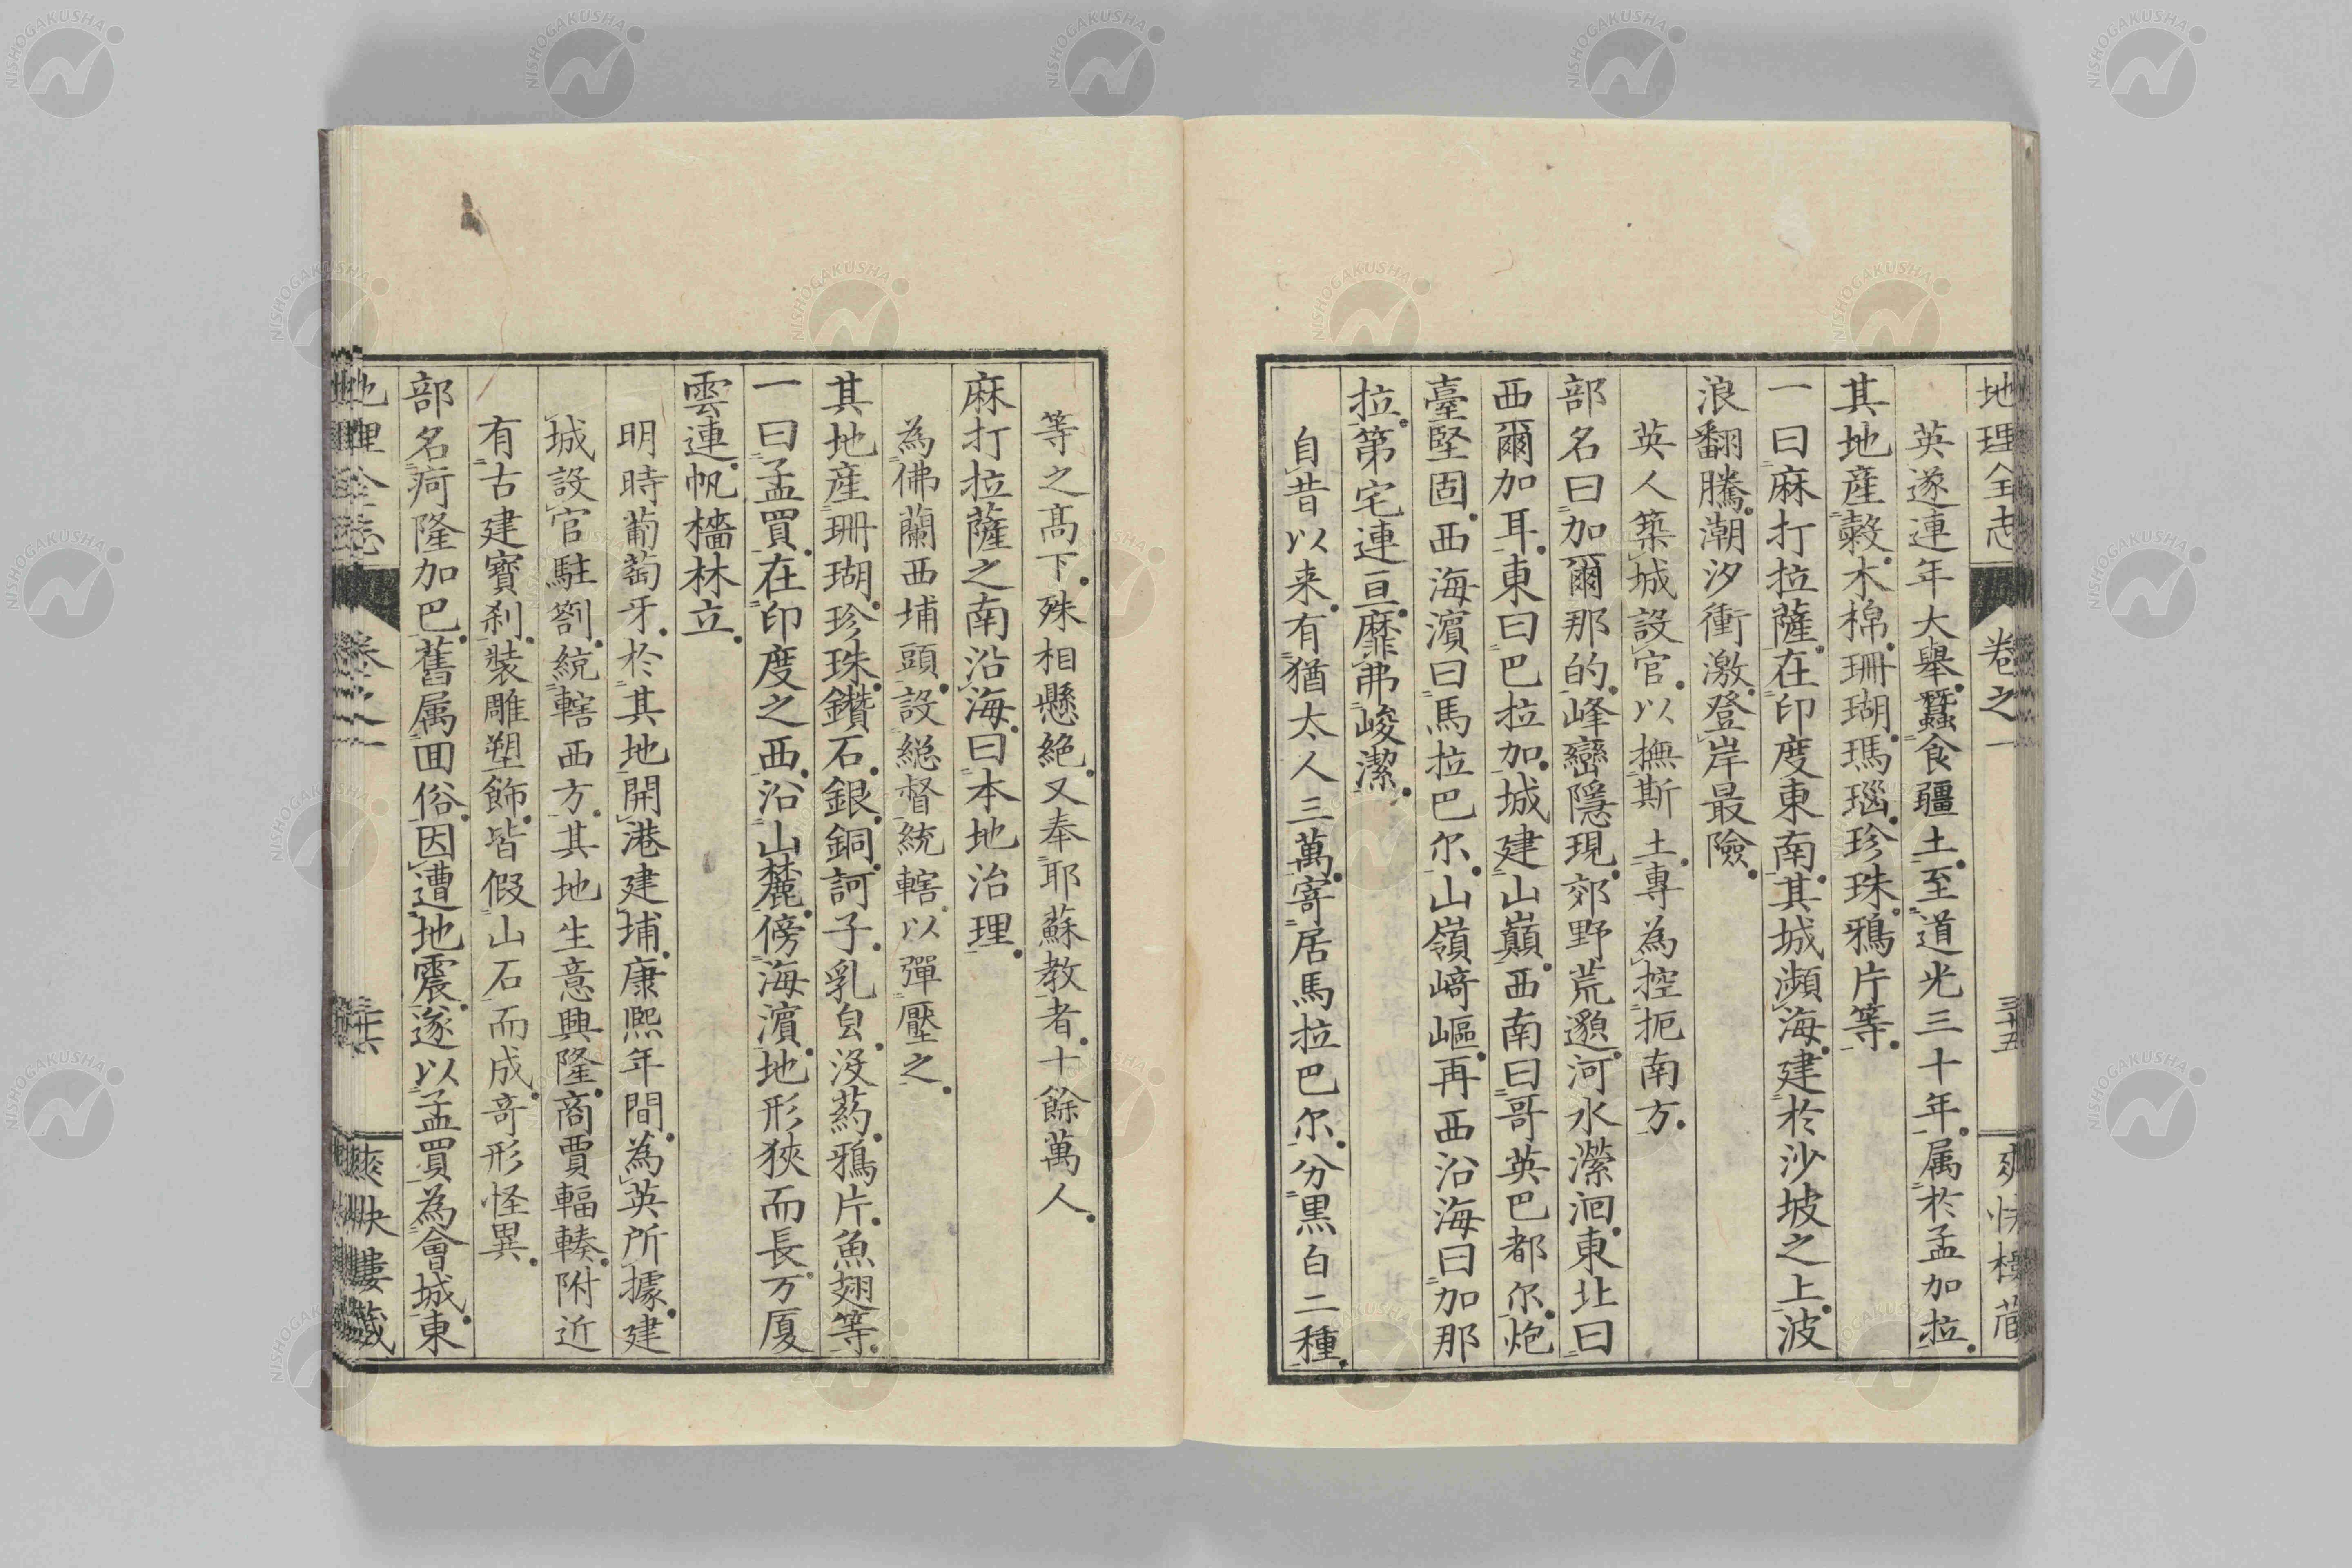 地理全志 卷之一 三十五 爽快樓藏
英遂連年大舉蠶食疆土至道光三十年属於孟加拉
其地産榖木棉珊瑚瑪瑙珍珠鴉片等
一曰麻打拉薩在印度東南其城瀕海建於沙坡之上波
浪翻騰潮汐衝激登岸最險
英人築城設官以撫斯土專為控扼南方
部名曰加爾那的峰巒隱現郊野荒邈河水瀠洄東北曰
西爾加耳東曰巴拉加城建山巔西南曰哥英巴都尔炮
臺堅固西海濱曰馬拉巴尔山嶺﨑嶇再西沿海曰加那
拉第宅連亘靡弗峻潔
自昔以来有猶太人三萬寄居馬拉巴尔分黒白二種
等之髙下殊相懸絶又奉耶蘇教者十餘萬人
麻打拉薩之南沿海曰本地治理
為佛蘭西埔頭設総督統轄以彈壓之
其地産珊瑚珍珠鑽石銀銅訶子乳㿝没药鴉片魚翅等
一曰孟買在印度之西沿山麓傍海濱地形狹而長万厦
雲連帆檣林立
明時葡萄牙於其地開港建埔康熙年間為英所據建
城設官駐劄統轄西方其地生意興隆商賈輻輳附近
有古建寳刹裝雕塑飾皆假山石而成竒形怪異
部名疴隆加巴舊属回俗因遭地震遂以孟買為會城東
地理全志 卷之一 三十六 爽快樓藏
NISHOGAKUSHA
NISHOGAKUSHA
NISHOGAKUSHA
NISHOGAKUSHA
NISHOGAKUSHA